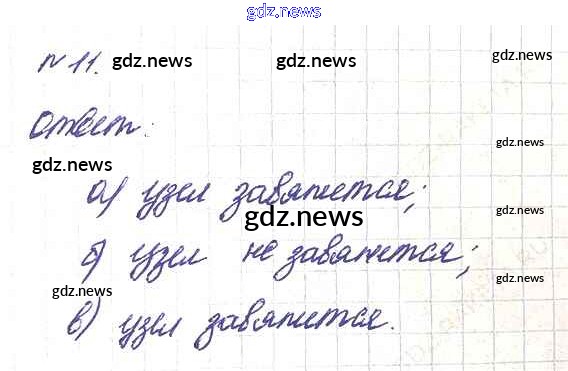 gdz.news
№ 11. gdz.news gdz.news gdz.news
Ответ:
gdz.news
gdz.news
а) узел завяжется;
gdz.news gdz.news
б) узел не завяжется;
gdz.news gdz.news
в) узел завяжется.